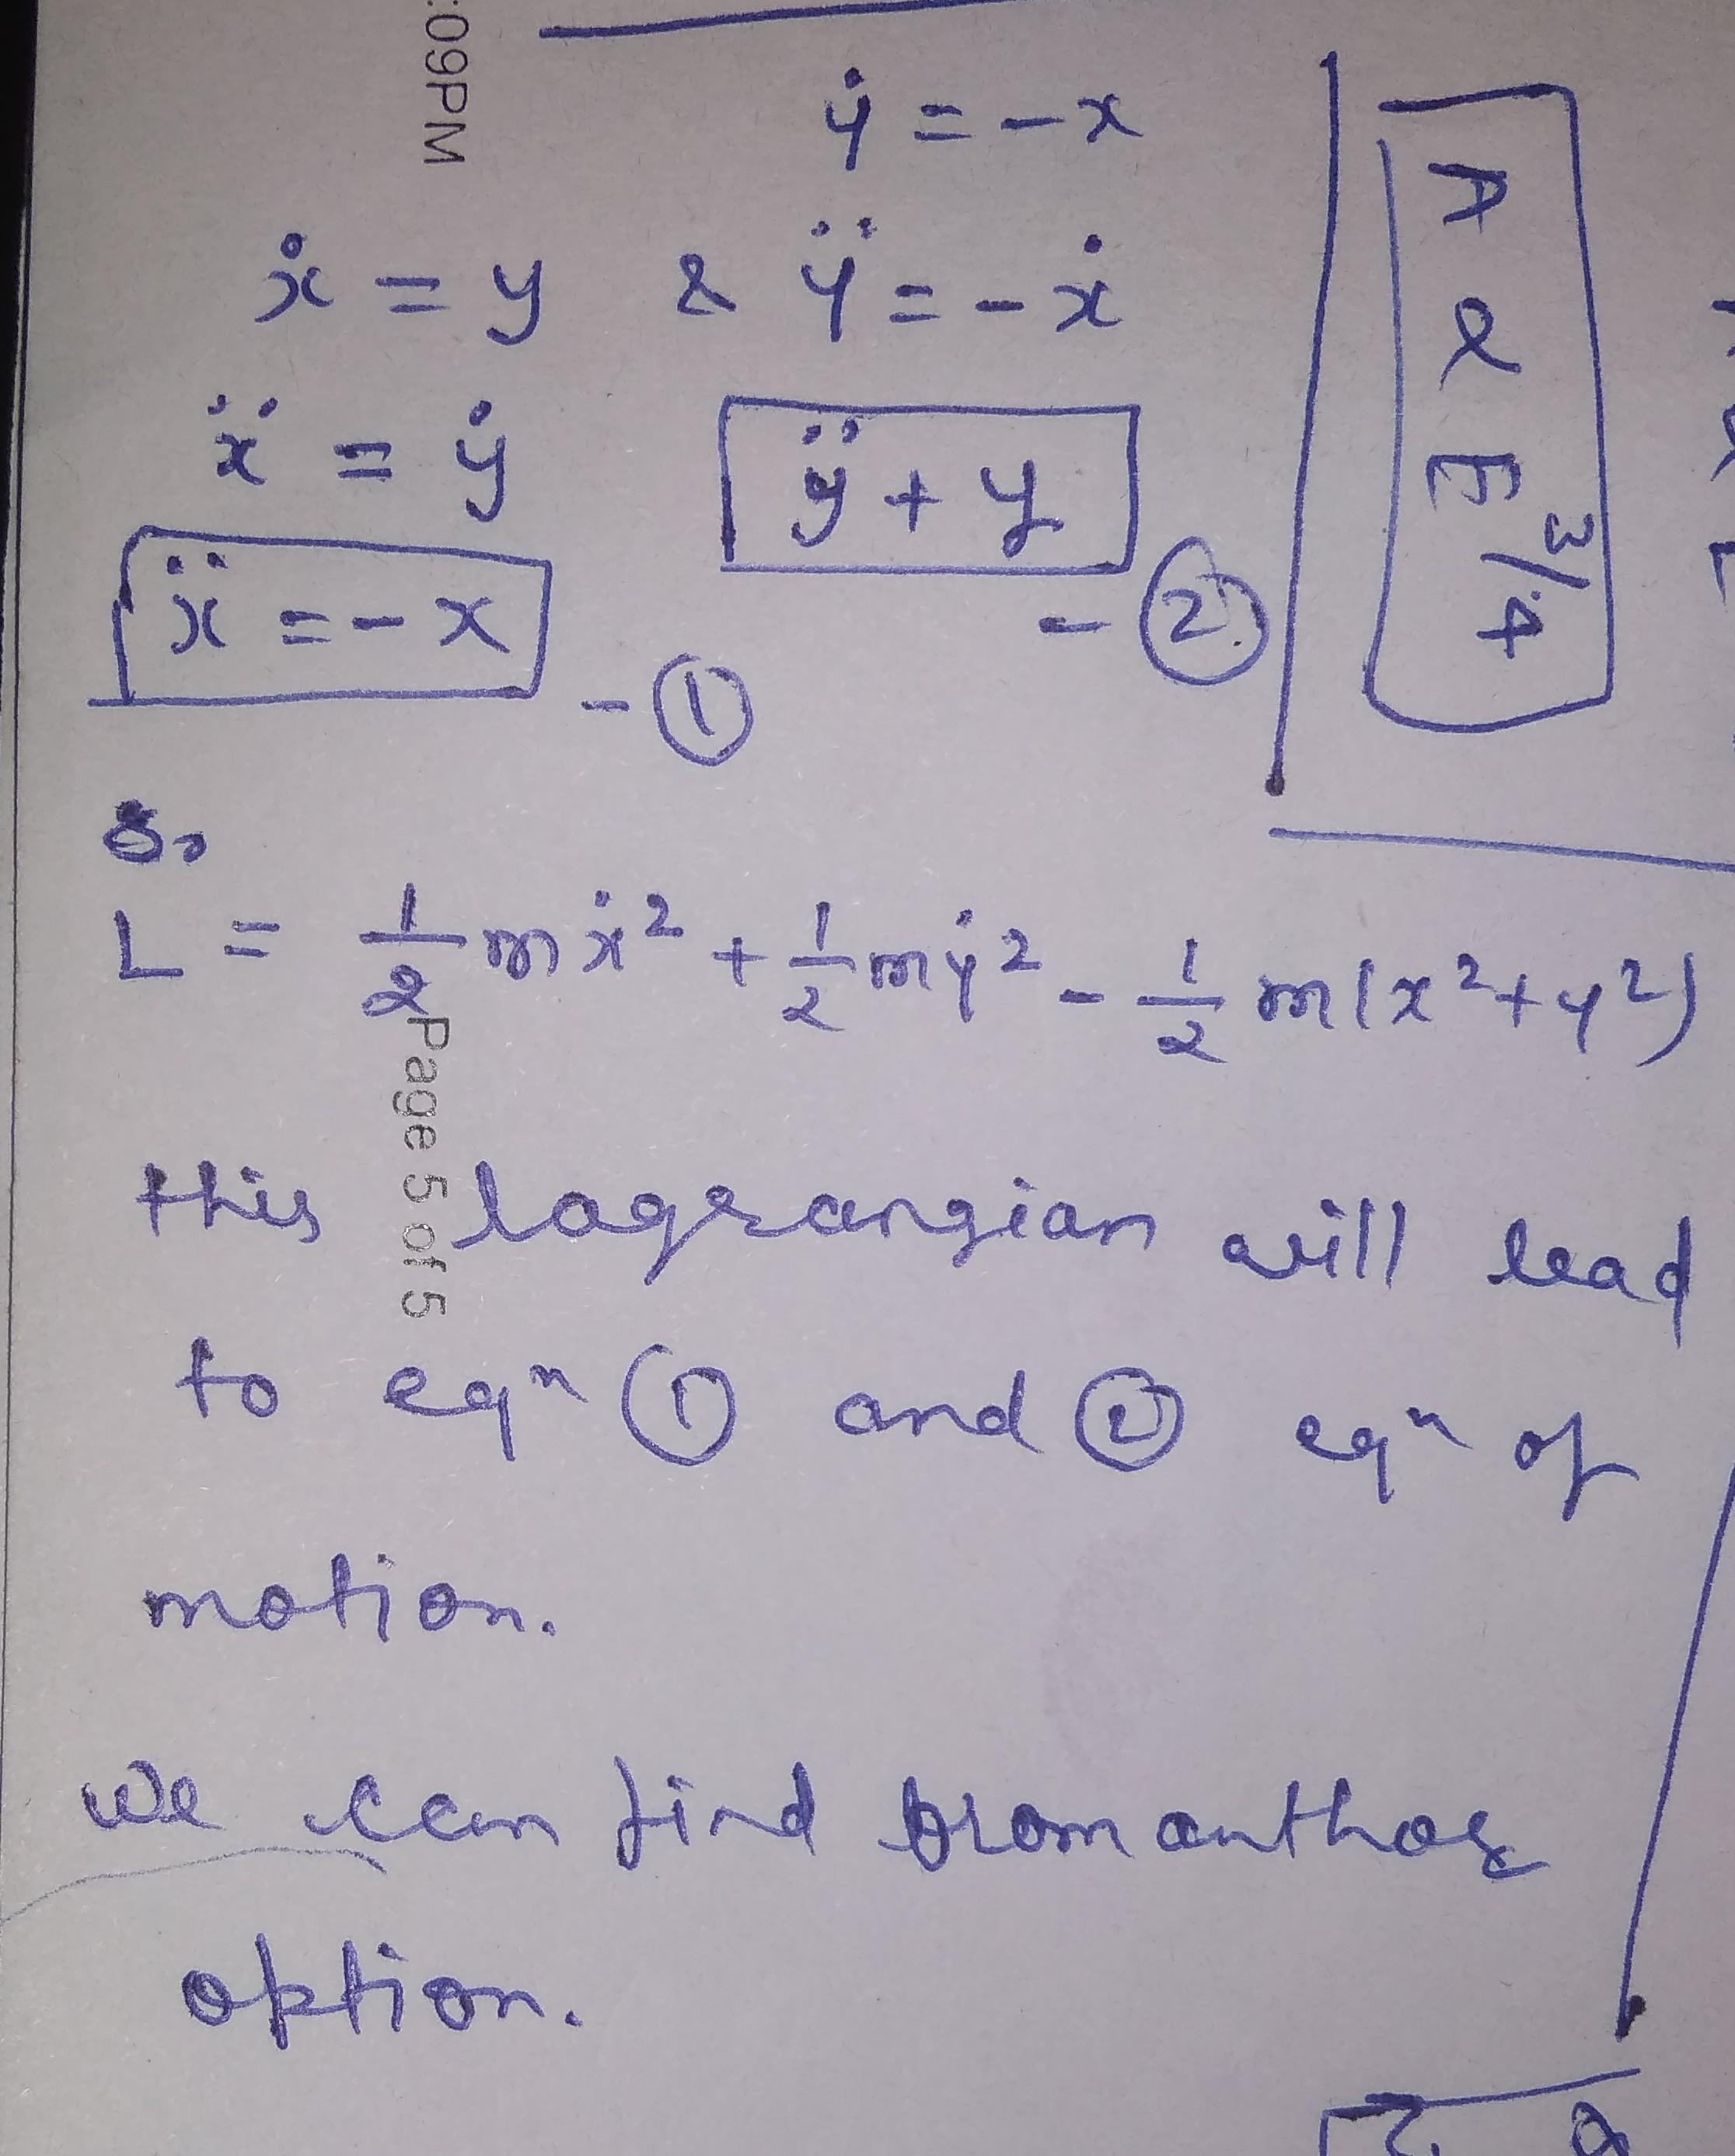 :09PM
ẏ = -x
ẋ = y & ÿ = -ẋ
ẍ = ẏ
ÿ + y
- ②
ẍ = -x
- ①
So
L = 1/2 mẋ² + 1/2 mẏ² - 1/2 m(x²+y²)
Page 5 of 5
this lagrangian will lead
to eqⁿ ① and ② eqⁿ of
motion.
we can find from anthor
option.
A α E^3/4